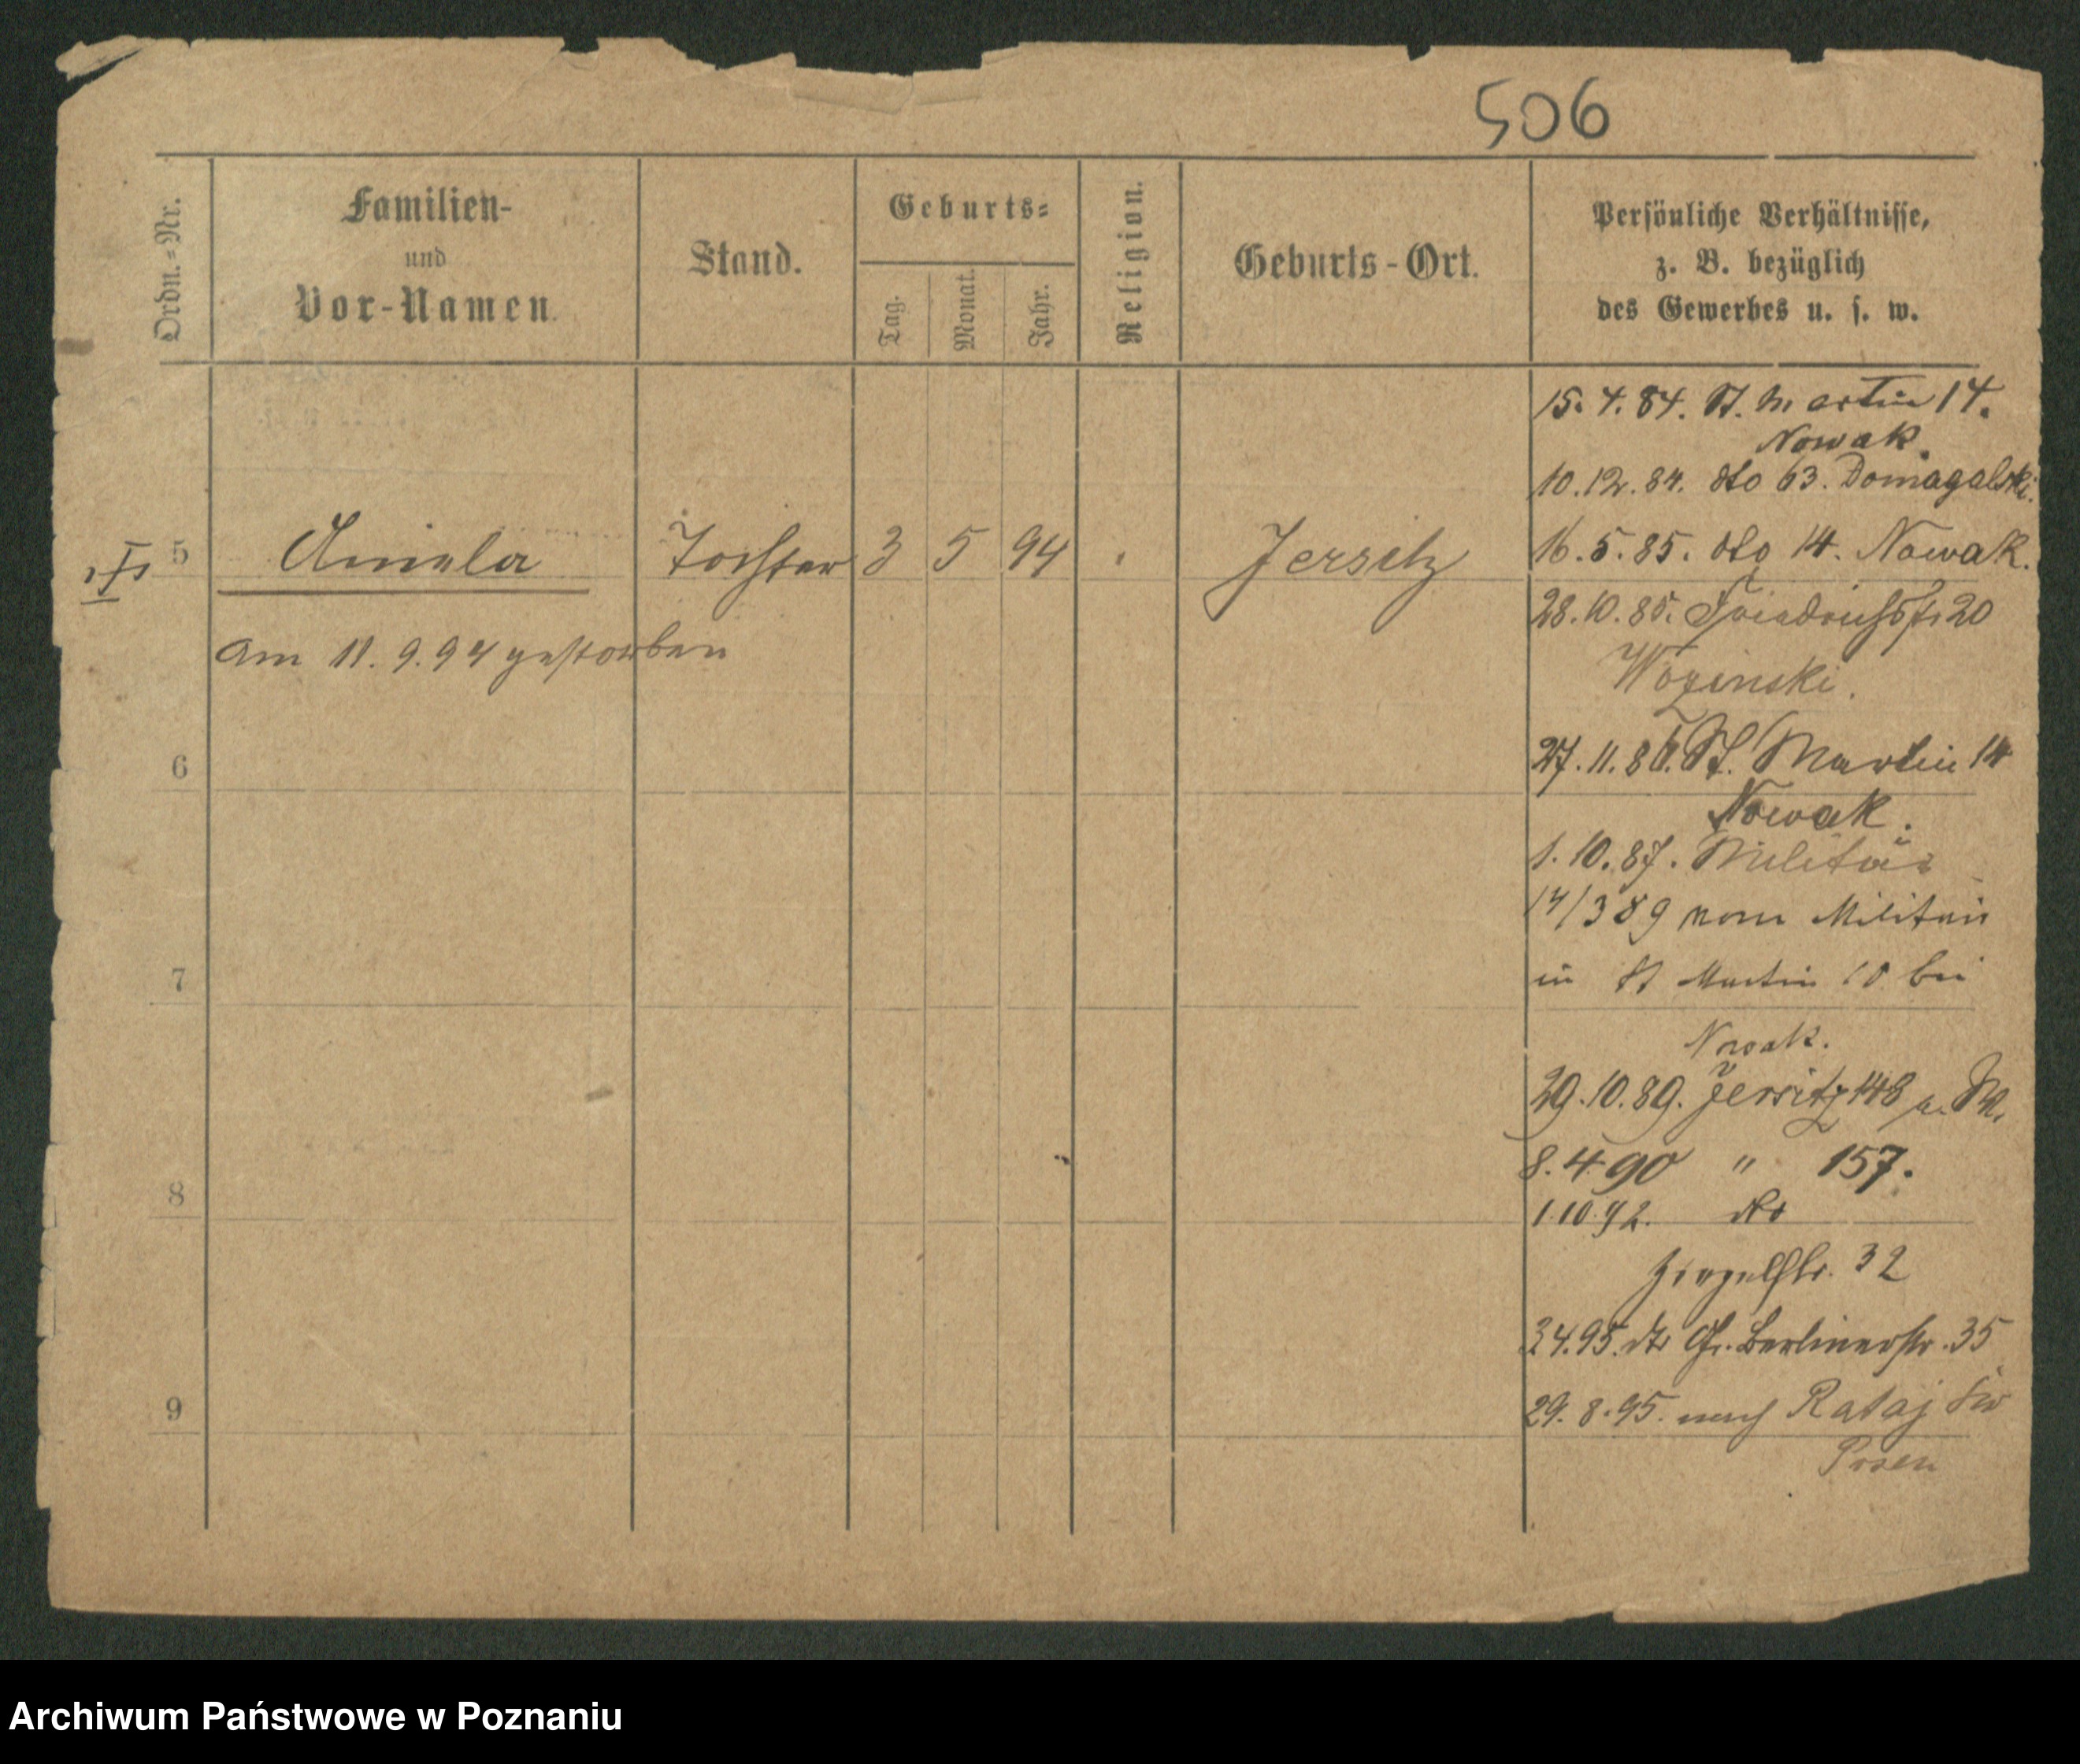 506
Ordn.-Nr.
Familien-
und
Vor-Namen.
Stand.
Geburts-
Tag.
Monat.
Jahr.
Religion.
Geburts-Ort.
Persönliche Verhältnisse,
z. B. bezüglich
des Gewerbes u. s. w.
15. 4. 84. St. Martin 14.
Nowak.
10. 12. 84. dto 63. Domagalski.
5 Aniela Tochter 3 5 94 Jersitz
16. 5. 85. dto 14. Nowak.
am 11. 9. 94 gestorben
28. 10. 85. Friedrichstr 20
Wozinski.
6
27. 11. 86. St. Martin 14
Nowak.
1. 10. 87. Militär
14/3 89 vom Militair
7
in St Martin 10 bei
Nowak.
29. 10. 89. Jersitz 148
8. 4 90 " 157.
8
1. 10. 92. dto
32
3 4. 95. dto Gr. Berlinerstr. 35
9
29. 8. 95. nach Rataj Krs
Posen
Archiwum Państwowe w Poznaniu